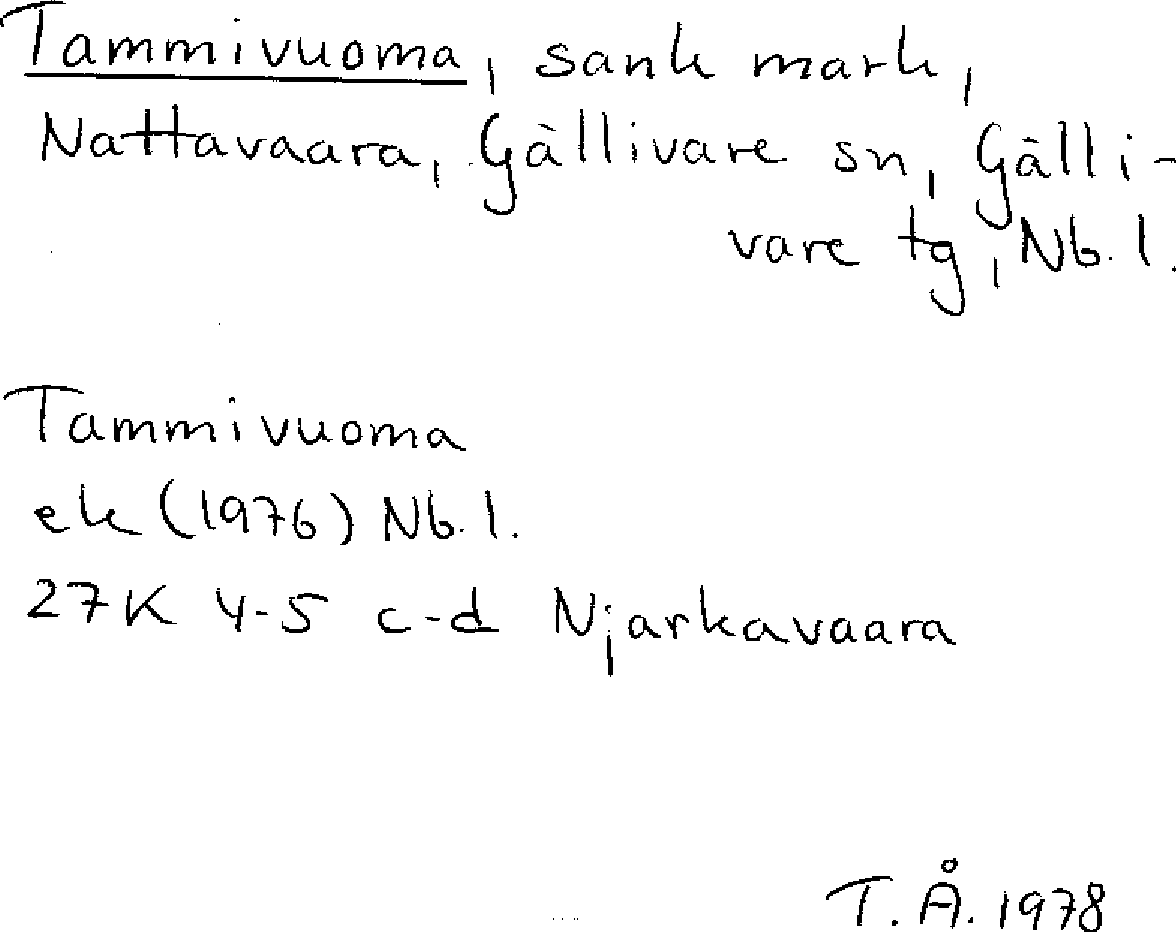 Tammivuoma, sank mark,
Nattavaara, Gällivare sn, Gälli-
vare tg, Nb. l.
Tammivuoma
ek (1976) Nb. l.
27K 4-5 c-d Njarkavaara
T. Å. 1978